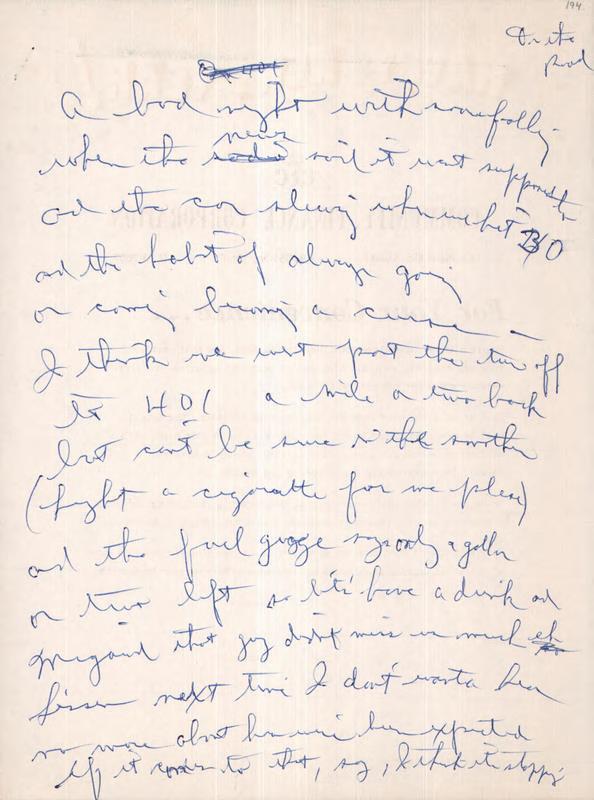 194.
On the
road
A bad night with snow falling
never
when the radio said it was supposed to
and the car slewing when we hit 30
and the habit of always going
or coming becoming a curse —
I think we went past the turn off
to 401 a mile or two back
but can't be sure in the weather
(Light a cigarette for me please)
and the fuel gauge says only a gallon
or two left so let's have a drink and
my gawd that guy didn't miss us much eh
Lissen next time I don't wanta hear
no more about how we've been expected
If it comes to that, say, I think it's stopping